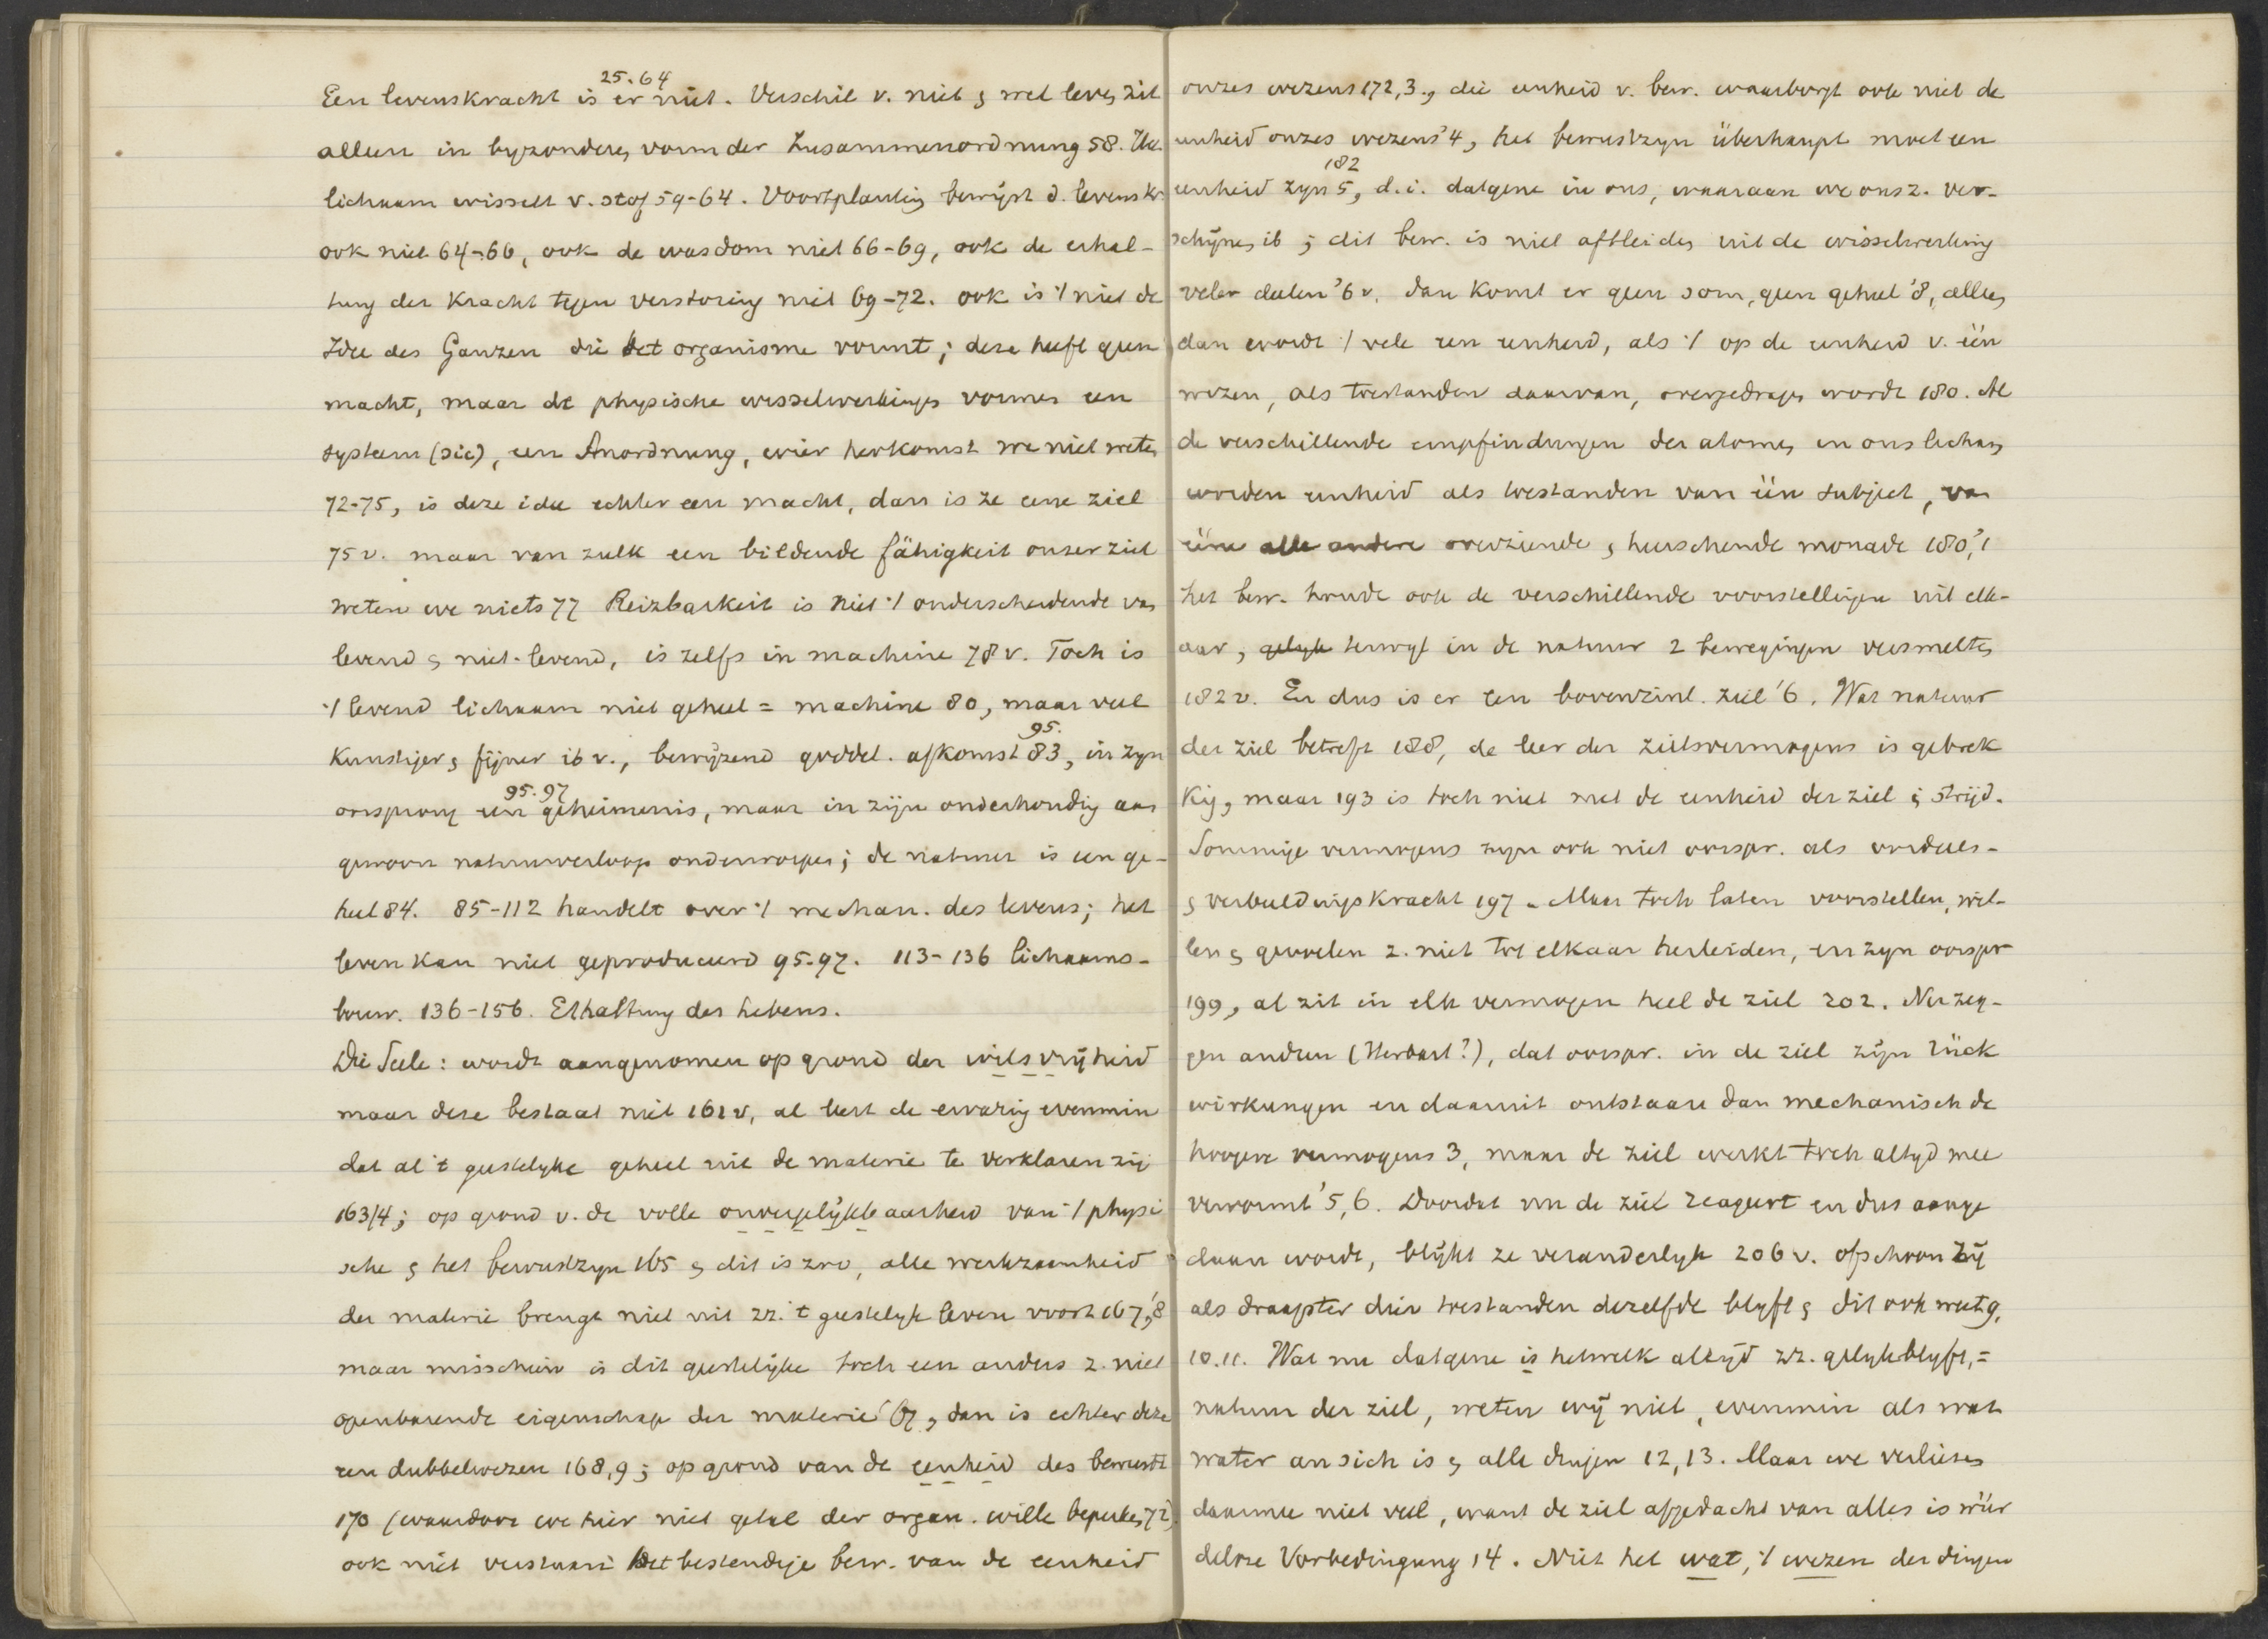 25.64
Een levenskracht is er niet. Verschil v. niet & wel leven zit
alleen in byzonderen vorm der Zusammenordnung 58. Het
lichaam wisselt v. stof 59-64. Voortplanting bewijst d. levenskr.
ook niet 64-66, ook de wasdom niet 66-69, ook de erhal-
tung der Kracht tegen verstoring niet 69-72. ook is 't niet de
Idee des Ganzen die het organisme vormt; deze heeft geen
macht, maar de physische wisselwerkingen vormen een
systeem (sic), een Anordnung, wier herkomst we niet weten
72-75, is deze idee echter een macht, dan is ze eene ziel
75 v. maar van zulk een bildende fähigkeit onzer ziel
weten we niets 77 Reizbarkeit is niet 't onderscheidende van
levend & niet-levend, is zelfs in machine 78 v. Toch is
't levend lichaam niet geheel = machine 80, maar veel
95.
kunstiger & fijner ib v., bewijzend goddel. afkomst 83, in zyn
95.97
oorsprong een geheimenis, maar in zijn onderhouding aan
gewoon natuurverloop onderworpen; de natuur is een ge-
heel 84. 85-112 handelt over 't mechan. des levens; het
leven kan niet geproduceerd 95.97. 113-136 lichaams-
bouw. 136-156. Erhaltung des Lebens.
Die Seele: wordt aangenomen op grond der wilsvrijheid
maar deze bestaat niet 161 v, al leert de ervaring evenmin
dat al 't geestelyke geheel uit de materie te verklaren zij
163/4; op grond v. de volle onvergelijkbaarheid van 't physi
sche & het bewustzyn 165 & dit is zoo, alle werkzaamheid
der materie brengt niet uit zz. 't geestelyk leven voort 167,'8
maar misschien is dit geestelijke toch een anders z. niet
openbarende eigenschap der materie '67, dan is echter deze
een dubbelwezen 168,9; op grond van de eenheid des bewustz
170 (waardoor we hier niet getal der organ. wille beperken 72)
ook niet verstaan: Het bestendige bew. van de eenheid
onzes wezens 172,3., die eenheid v. bew. waarborgt ook niet de
eenheid onzes wezens '4, het bewustzyn überhaupt moet een
182
eenheid zyn 5, d.i. datgene in ons, waaraan we ons z. ver-
schijnen ib; dit bew. is niet afteleiden uit de wisselwerking
veler deelen '6 v. dan komt er geen som, geen geheel '8, alleen
dan wordt 't vele een eenheid, als 't op de eenheid v. één
wezen, als toestanden daarvan, overgedragen wordt 180. Al
de verschillende empfindungen der atomen in ons lichaam
worden eenheid als toestanden van één subject, van
ééne alle andere overziende & heerschende monade 180,'1
het bew. houdt ook de verschillende voorstellingen uit elk-
aar, gelyk terwyl in de natuur 2 bewegingen versmelten
182 v. En dus is er een bovenzinl. ziel '6. Wat natuur
der ziel betreft 188, de leer der zielsvermogens is gebrek
kig, maar 193 is toch niet met de eenheid der ziel in strijd.
Sommige vermogens zyn ook niet oorspr. als oordeels-
& verbeeldingskracht 197. Maar toch laten voorstellen, wil-
len & gevoelen z. niet tot elkaar herleiden, en zyn oorspr
199, al zit in elk vermogen heel de ziel 202. Nu zeg-
gen andren (Herbart?), dat oorspr. in de ziel zijn Rück
wirkungen en daaruit ontstaan dan mechanisch de
hoogere vermogens 3, maar de ziel werkt toch altyd mee
vervormt '5,6. Doordat nu de ziel reageert en dus aange
daan wordt, blijkt ze veranderlyk 206 v. ofschoon zij
als draagster dier toestanden dezelfde blyft & dit ook weet 9,
10.11. Wat nu datgene is hetwelk altijd zz. gelykblyft, =
natuur der ziel, weten wij niet, evenmin als wat
water an sich is & alle dingen 12,13. Maar we verliezen
daarmee niet veel, want de ziel afgedacht van alles is wür
delose Vorbedingung 14. Niet het wat, 't wezen der dingen